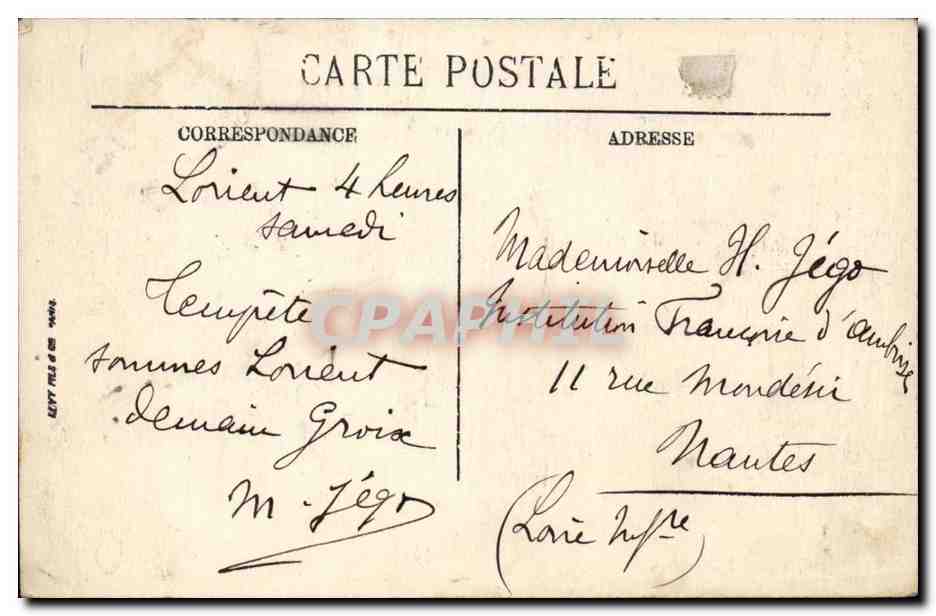 CARTE POSTALE
CORRESPONDANCE
Lorient 4 heures
samedi
Tempête
sommes Lorient
demain Groix
M. Jégo
ADRESSE
Mademoiselle H. Jégo
Institution Françoise d'Amboise
11 rue Mondésir
Nantes
(Loire Infre)
LEVY FILS & Cie PARIS
CPAPHIL